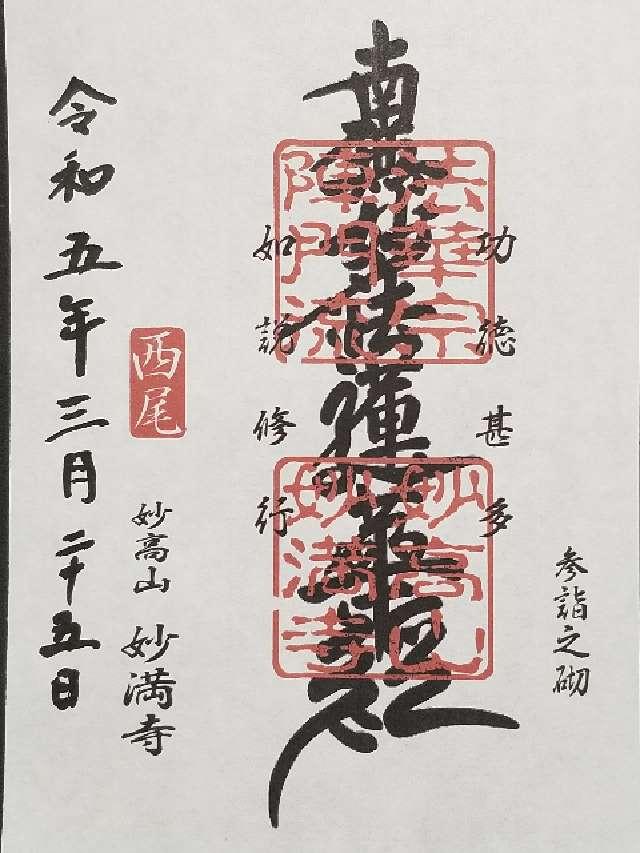 参詣之砌
功徳甚多
南無妙法蓮華経
如説修行
法華宗
陣門流
妙高山
妙満寺
西尾
妙高山 妙満寺
令和五年三月二十五日